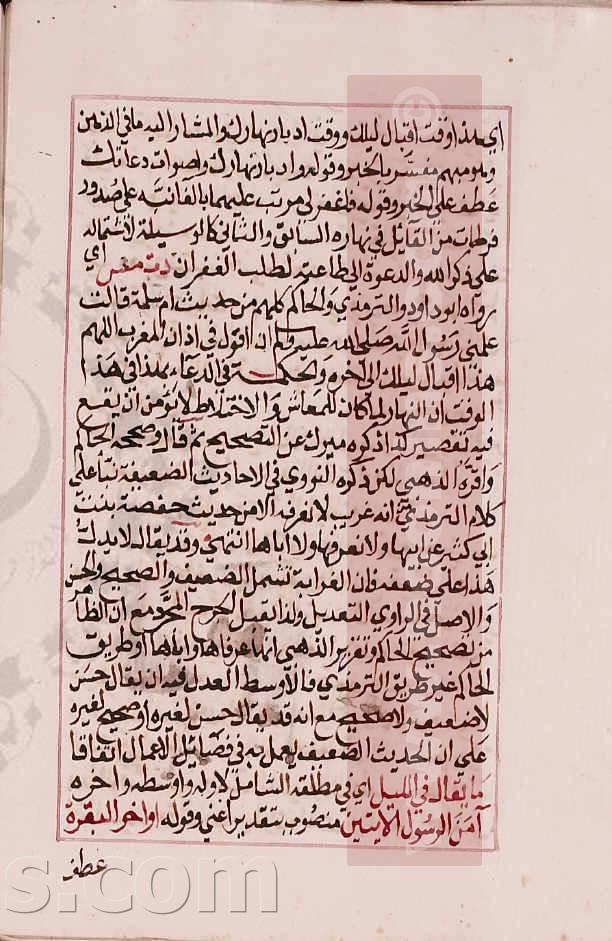 اي هذا وقت اقبال ليلك ووقت ادبار نهارك والمشار اليه ما في الذهن
وهو مبهم مفسر بالخبر وقوله وادبار نهارك واصوات دعاتك
عطف على الخبر وقوله فاغفر لي مرتب عليهما بالفائية على صدور
فرطات من القائل في نهاره السابق والثاني كالوسيلة لاشتماله
على ذكر الله والدعوة الى طاعته لطلب الغفران دت مس اي
رواه ابو داود والترمذي والحاكم كلهم من حديث ام سلمة قالت
علمني رسول الله صلى الله عليه وسلم ان اقول في اذان المغرب اللهم
هذا اقبال ليلك الى اخره والحكمة في الدعاء بهذا في هذا
الوقت ان النهار لما كان للمعاش والاختلاط لا يؤمن ان يقع
فيه تقصير كذا ذكره ميرك عن التصحيح ثم قال وصححه الحاكم
واقره الذهبي لكن ذكره النووي في الاحاديث الضعيفة بناء على
كلام الترمذي انه غريب لا نعرفه الا من حديث حفصة بنت
ابي كثير عن ابيها ولا نعرفها ولا اباها انتهى وقد يقال لا يدل
هذا على ضعفه فان الغرابة تشمل الضعيف والصحيح والحسن
والاصل في الراوي التعديل ولذا يقبل الجرح المجرد مع ان الظاهر
من تصحيح الحاكم وتقرير الذهبي انهما عرفاها واباها او طريق
الحاكم غير طريق الترمذي فالاوسط العدل فيه ان يقال حسن
لا ضعيف ولا صحيح مع انه قد يقال حسن لغيره او صحيح لغيره
على ان الحديث الضعيف يعمل به في فضائل الاعمال اتفاقا
ما يقال في الليل اي في مطلقه الشامل لاوله واوسطه واخره
آمن الرسول الايتين منصوب بتقدير اعني وقوله اواخر البقرة
عطف
s.com